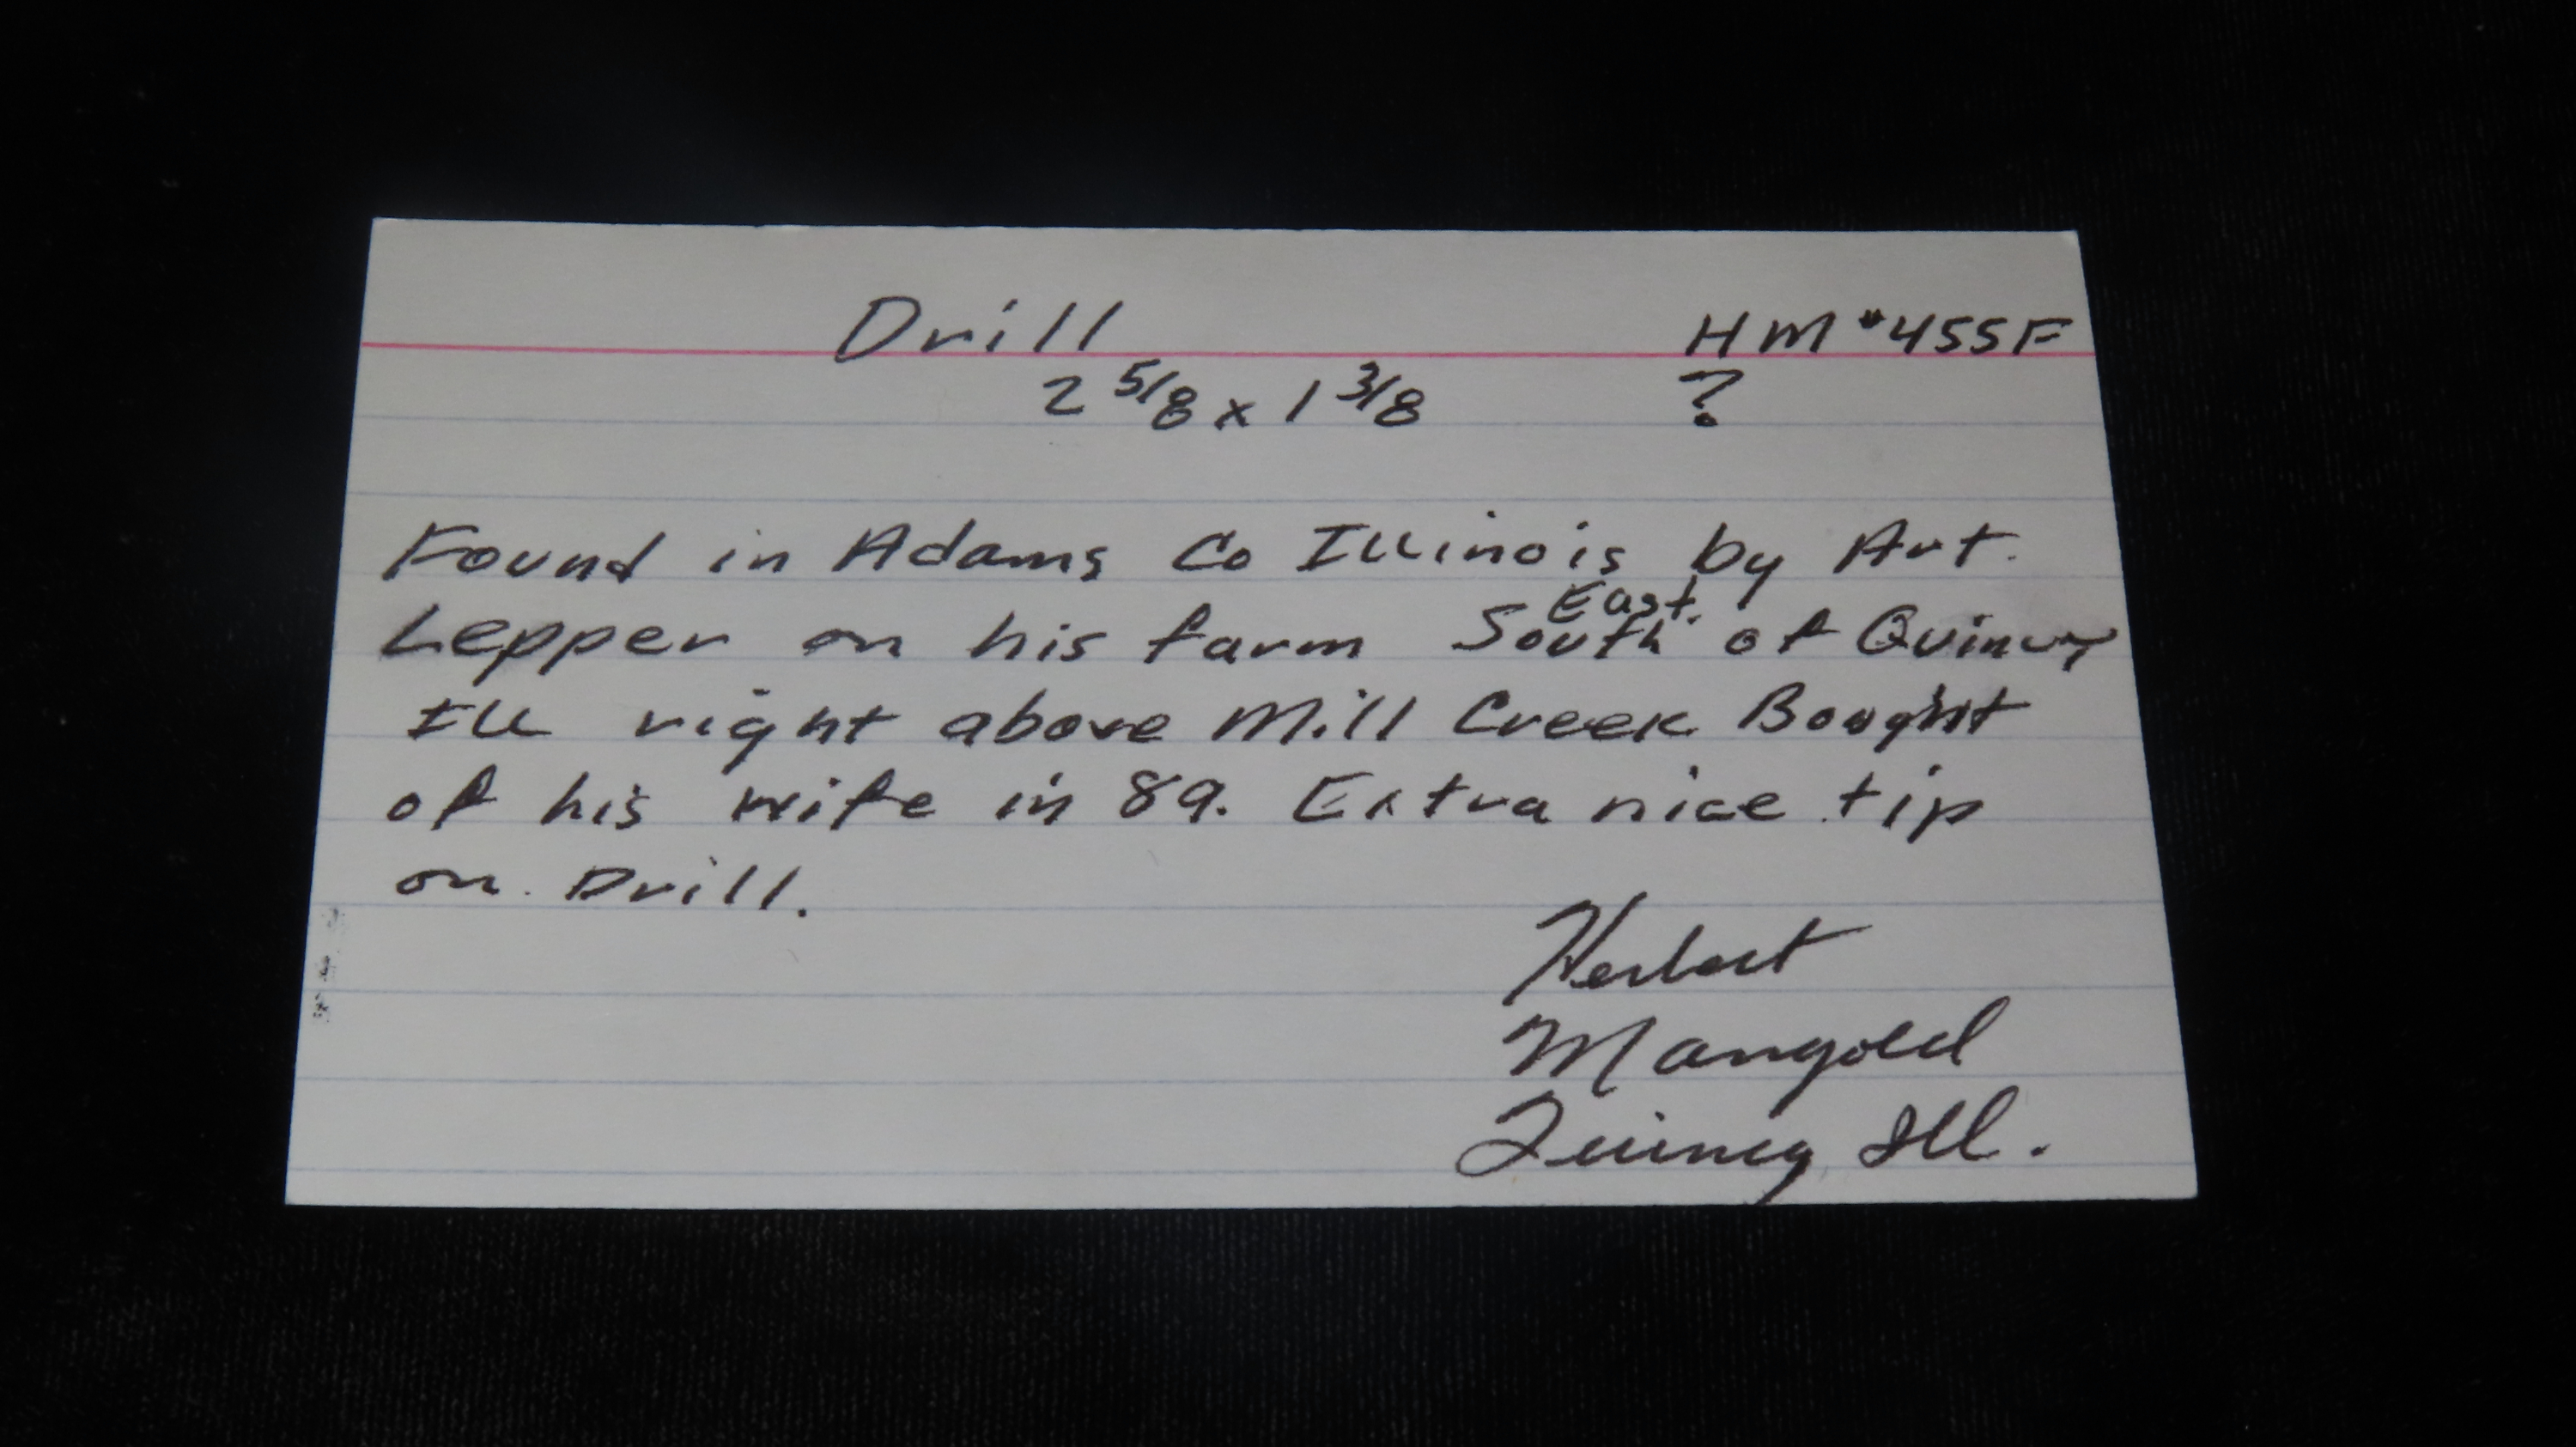 Drill HM #455F
2 5/8 x 1 3/8 ?
Found in Adams Co Illinois by Art.
East.
Lepper on his farm South of Quincy
Ill right above Mill Creek Bought
of his wife in 89. Extra nice tip
on Drill.
Herbert
Mangold
Quincy Ill.